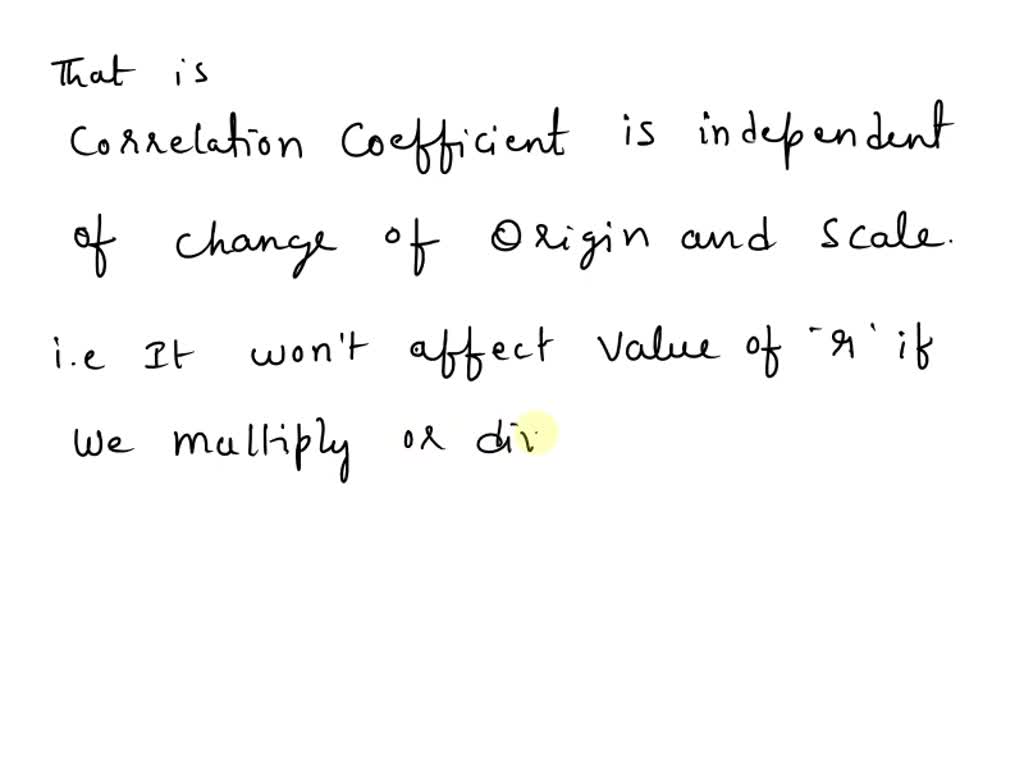 That is
Correlation Coefficient is independent
of change of Origin and Scale.
i.e It won't affect Value of 'r' if
we multiply or div